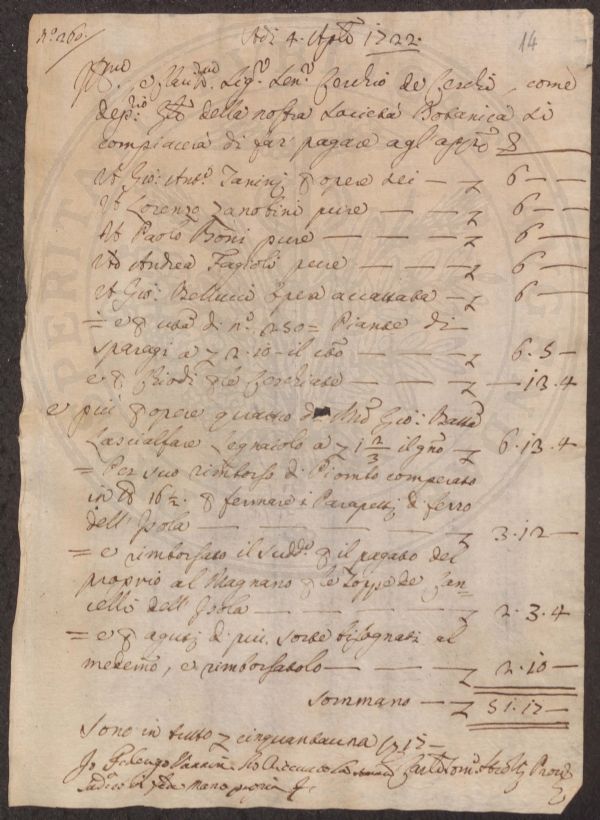 N.o 260.
Adì 4. Aple 1722.
14
Ill.mo, e Clariss.mo Sig.r Sen.re Cerchio de Cerchi, come
dep.rio della nostra Società Botanica si
compiaccia di far pagare agl'appo
A Gio: Ant.o Tanini p opere sei — 6 —
A Lorenzo Zanobini pure — 6 —
A Paolo Boni pure — 6 —
Ad Andrea Fagioli pure — 6 —
A Gio: Bellucci opera accattata — 6 —
= e p cto di n.o 250 = Piante di
sparagi a 2.10 il cto — 6.5 —
e p Chiodi p le Cerchiate — 13.4
e più p opere quattro di Mro Gio: Batta
Lascialfare Legnaiolo a 1 2/3 il gno 6.13.4
= Per suo rimborso di Piombo comprato
in lb 16 1/2. p fermare i Parapetti di ferro
dell'Isola — 3.12 —
= e rimborsato il sudd.o p il pagato del
proprio al Magnano p le Toppe de Can-
celli dell'Isola — 2.3.4
= e p aguti di più sorte bisognati al
medemo, e rimborsatolo — 2.10 —
sommano — 51.17 —
Sono in tutto cinquantauna 17 —
mano propria